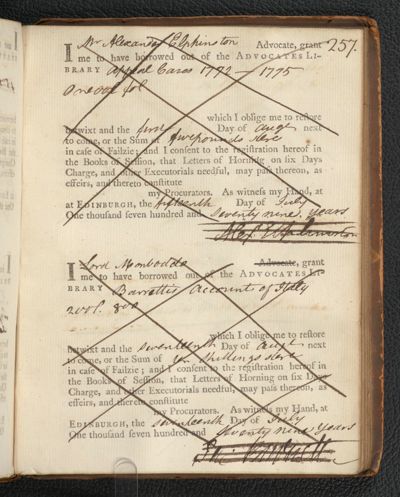 257.
I Mr Alexander Elphinston Advocate, grant
me to have borrowed out of the ADVOCATES LI-
BRARY Appeal Cases 1772 - 1775
One vol fol
which I oblige me to reſtore
betwixt and the first Day of Augt next
to come, or the Sum of five pounds Ster
in caſe of Failzie; and I conſent to the regiſtration hereof in
the Books of Seſſion, that Letters of Horning on ſix Days
Charge, and other Executorials needful, may paſs thereon, as
effeirs, and thereto conſtitute
my Procurators. As witneſs my Hand, at
at EDINBURGH, the fifteenth Day of July
One thouſand ſeven hundred and Seventy nine years
Alexr Elphinston
I Lord Monboddo Advocate, grant
me to have borrowed out of the ADVOCATES LI-
BRARY Barrettis Account of Italy
2 vol. 8vo
which I oblige me to reſtore
betwixt and the seventeenth Day of Augt next
to come, or the Sum of ten Shillings Ster
in caſe of Failzie; and I conſent to the regiſtration hereof in
the Books of Seſſion, that Letters of Horning on ſix Days
Charge, and other Executorials needful, may paſs thereon, as
effeirs, and thereto conſtitute
my Procurators. As witneſs my Hand, at
EDINBURGH, the seventeenth Day of July
One thouſand ſeven hundred and Seventy nine years